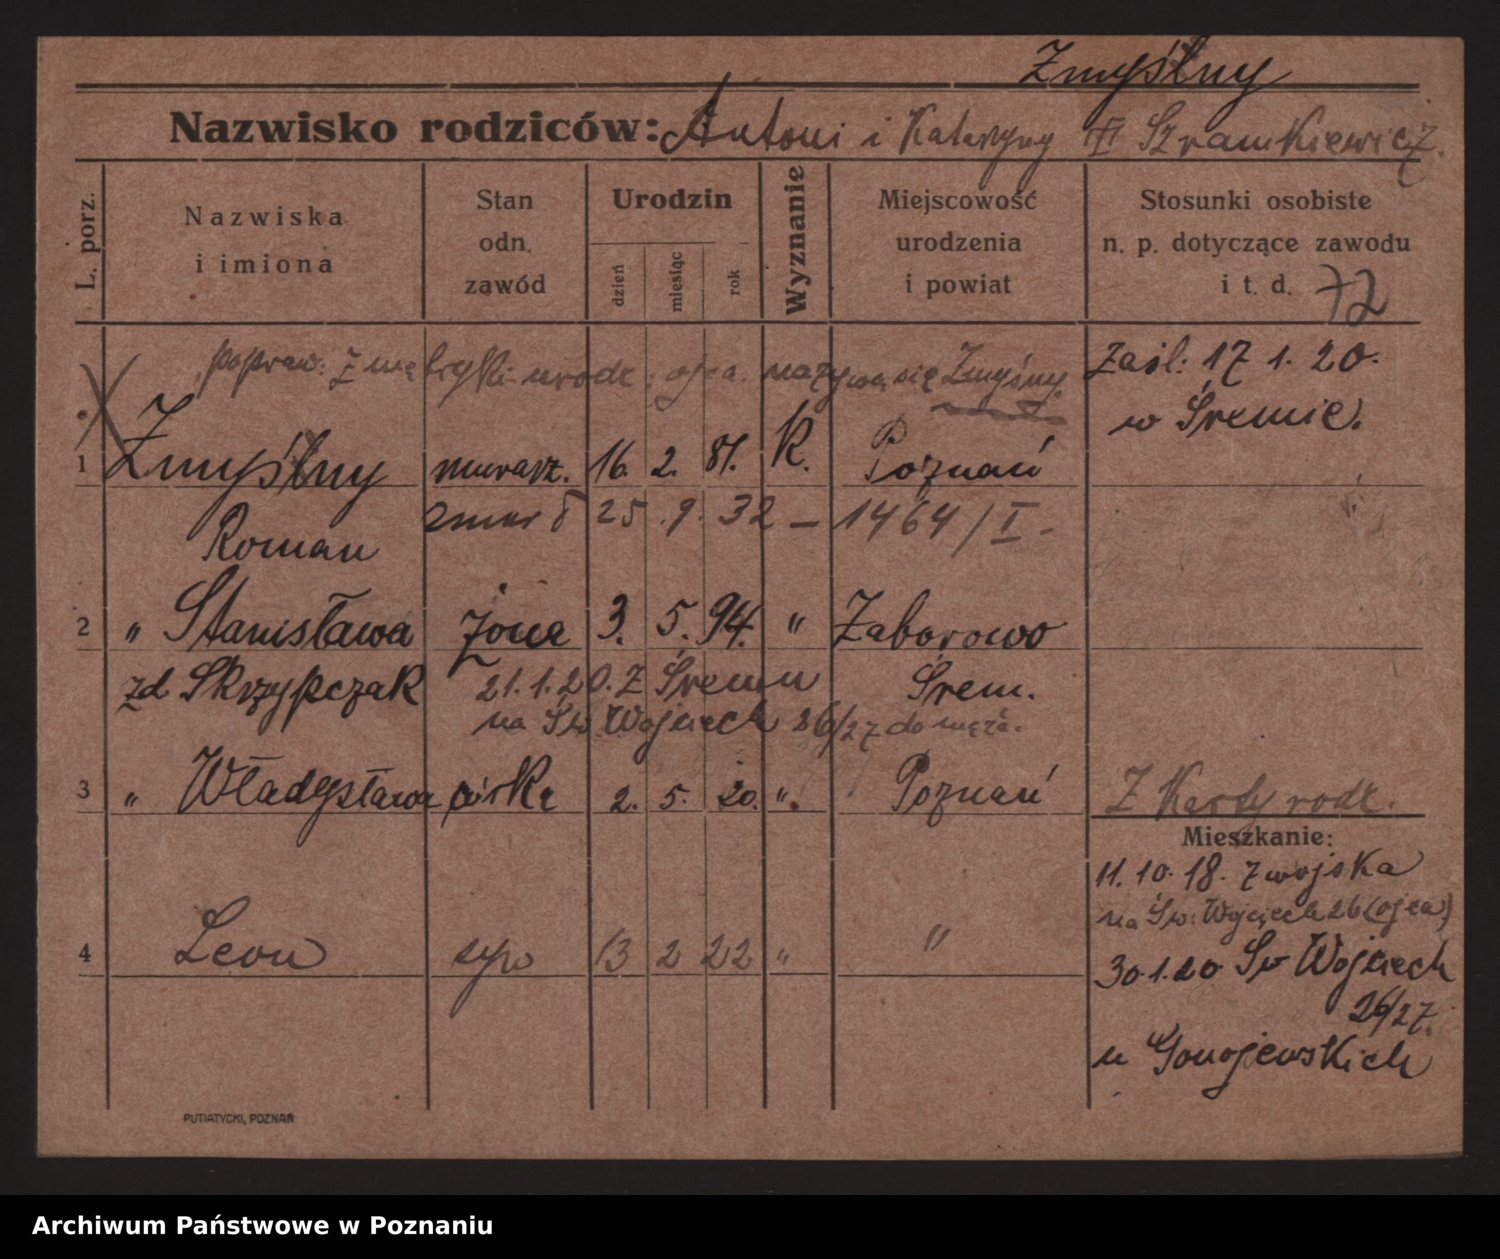 Zmyślny
Nazwisko rodziców: Antoni i Katarzyny Szramkiewicz.
L. porz.
Nazwiska
i imiona
Stan
odn.
zawód
Urodzin
dzień
miesiąc
rok
Wyznanie
Miejscowość
urodzenia
i powiat
Stosunki osobiste
n. p. dotyczące zawodu
i t. d. 72
popraw. Z metryki urodz. ojca nazywa się Zmyśny
Zaśl: 17 1. 20.
w Śremie.
1 Zmyślny murarz. 16. 2. 81. K. Poznań
Roman zmarł 25. 9. 32 – 1464/I -
2 " Stanisława żona 3. 5. 94. " Zaborowo
zd Skrzypczak 21.1.20. Z Śremu Śrem.
na Św Wojciech 26/27 do męża.
3 " Władysława córka 2. 5. 20. ". Poznań
Z Karty rodz.
Mieszkanie:
11. 10. 18. Z wojska
na Św: Wojciech 26 (ojca)
4 Leon syn 13 2 22 " "
30.1.20 Św Wojciech
26/27.
u Gonojewskich
PUTIATYCKI, POZNAŃ
Archiwum Państwowe w Poznaniu